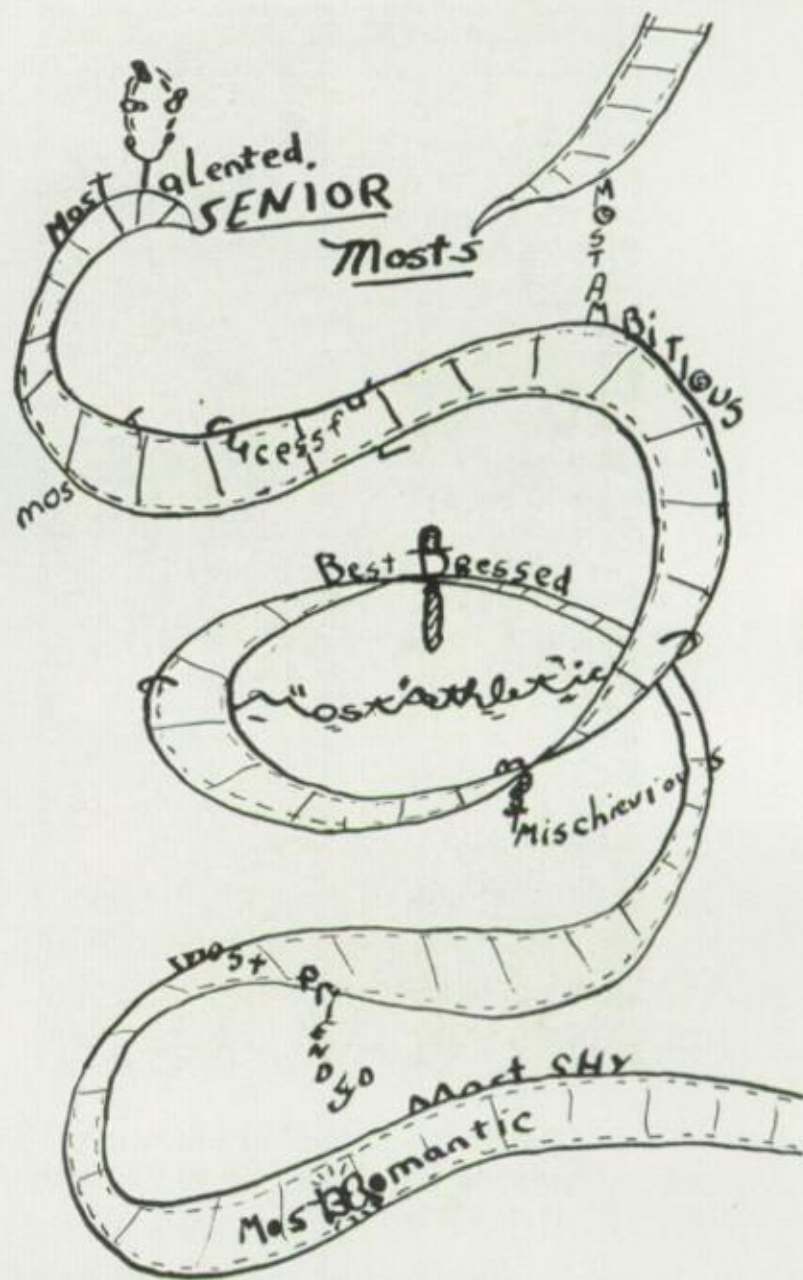 Most Talented.
SENIOR
Mosts
MOST AMBiTiOUS
mos
ucessful
Best Dressed
"ost Athletic
Mischievious
most
FriENDly
Most SHY
Most Romantic